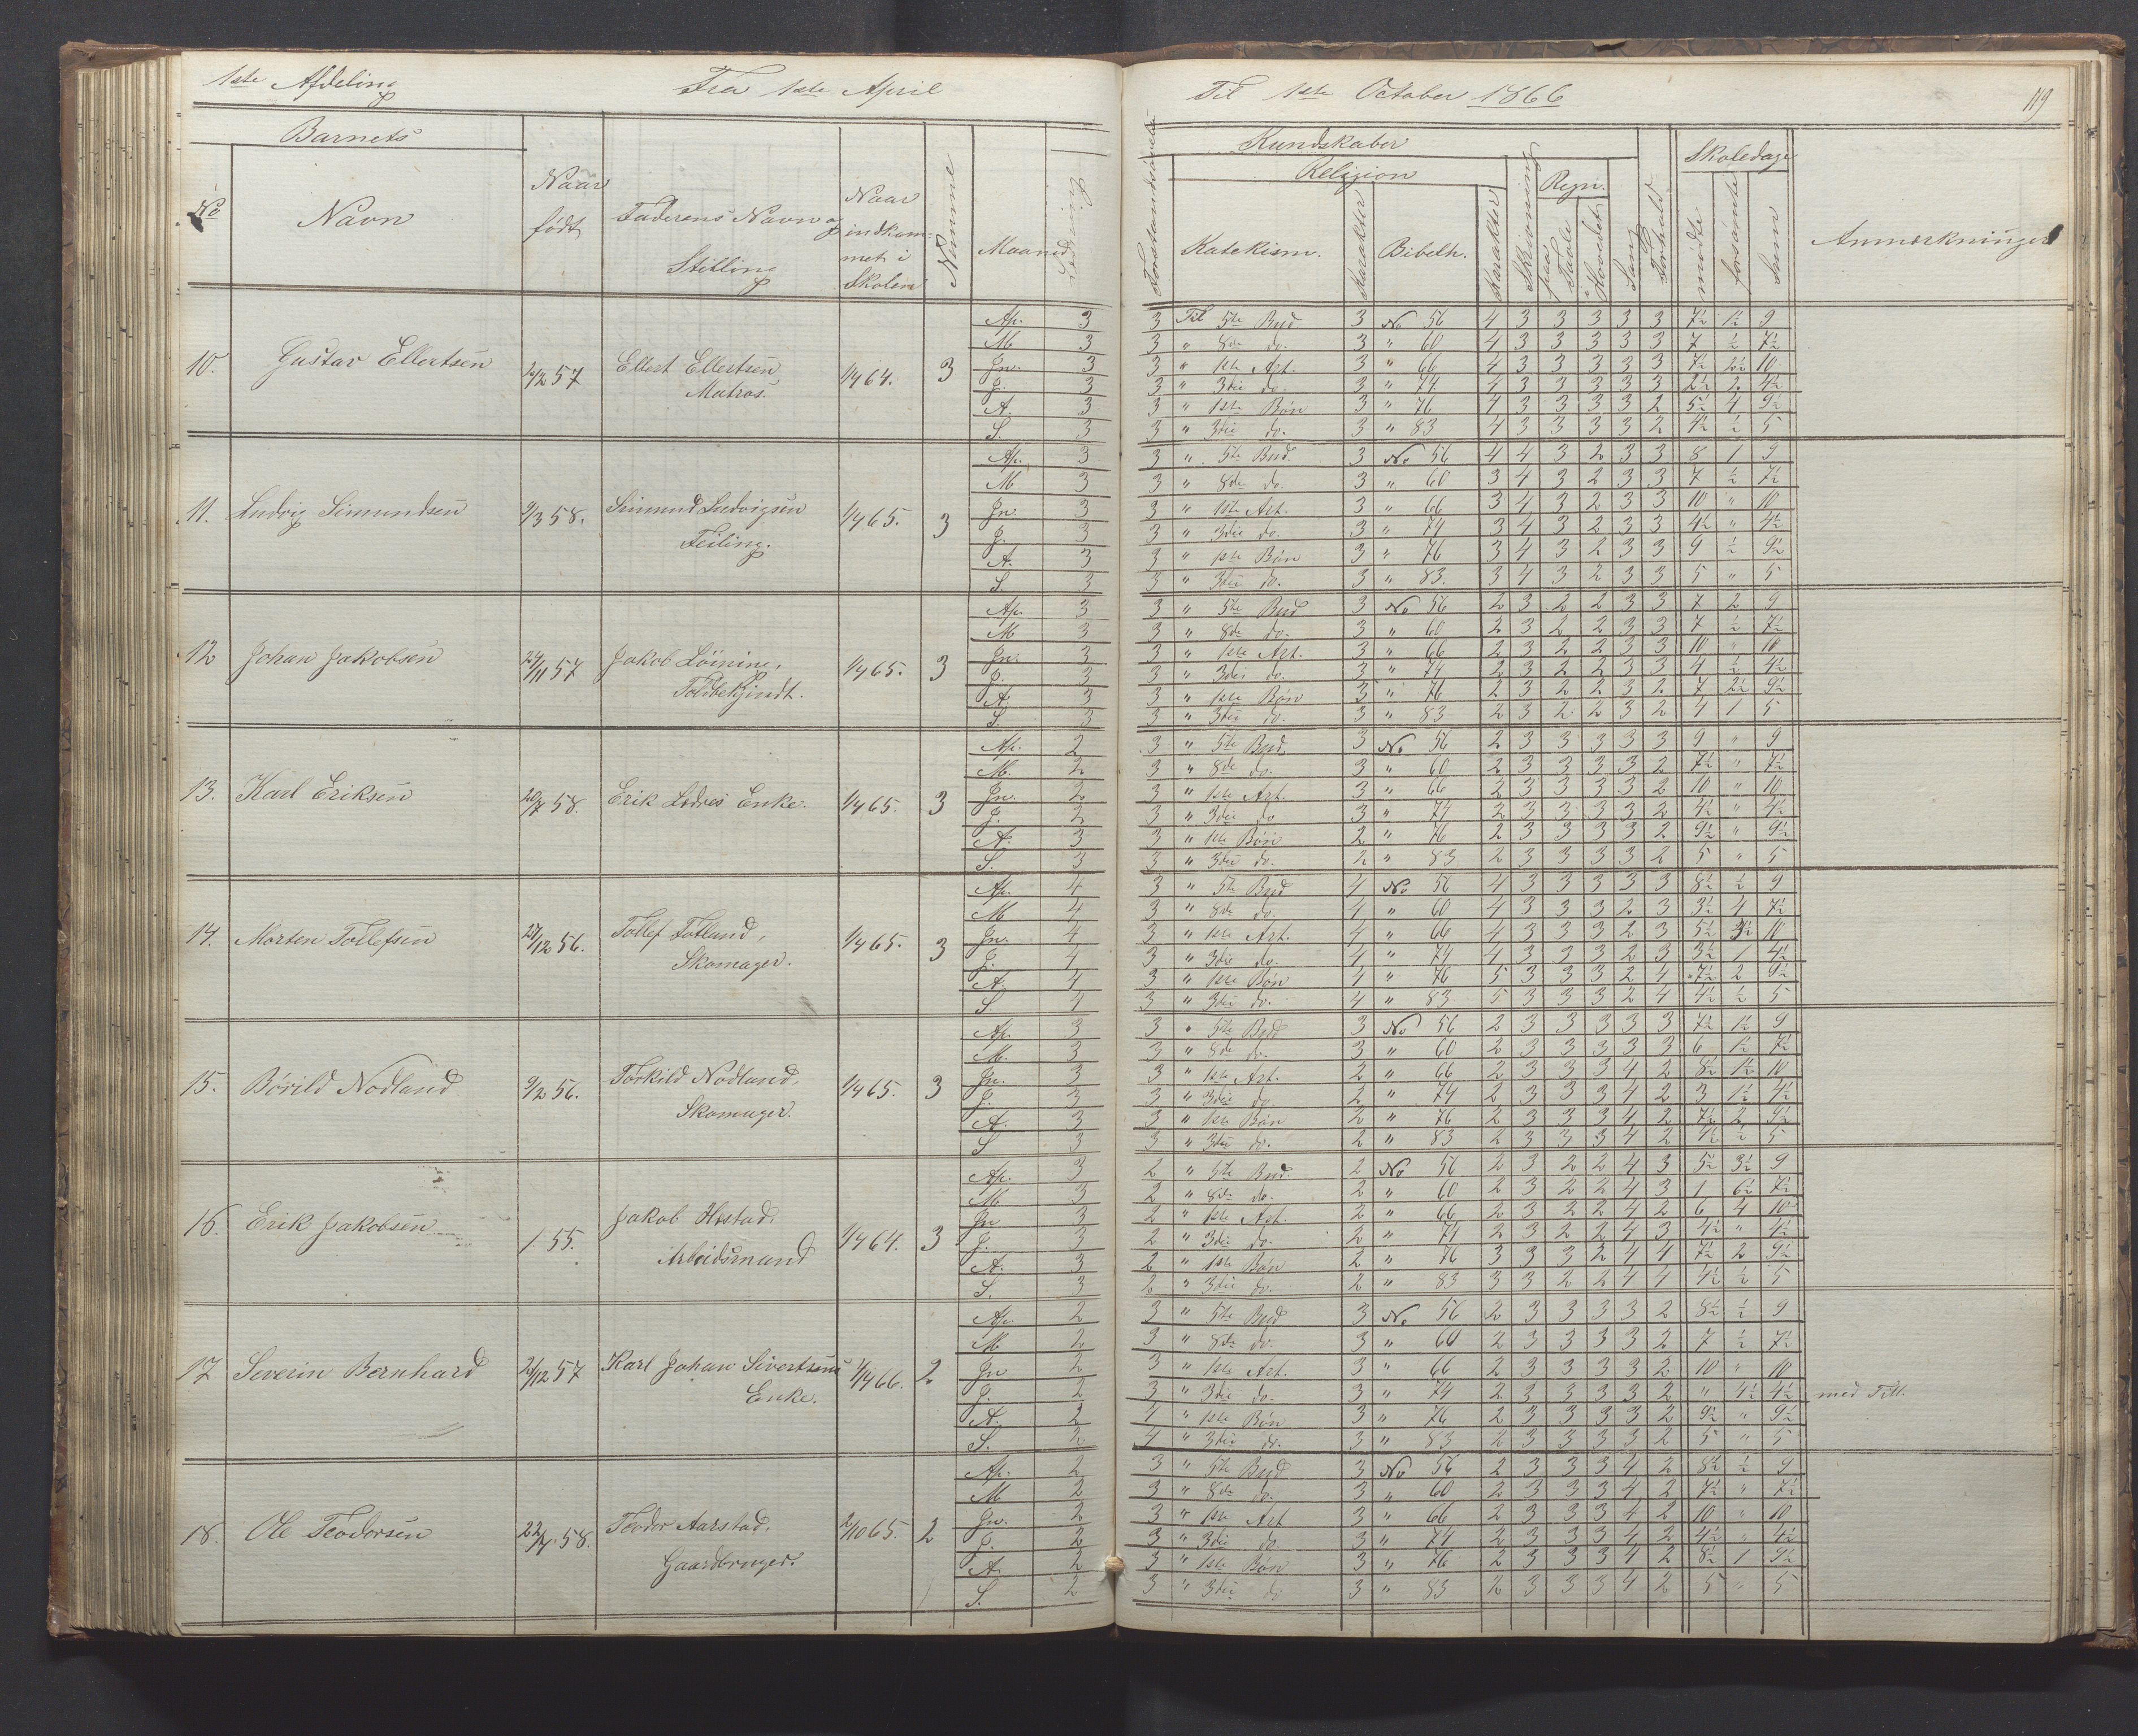 1ste Afdeling Fra 1ste April Til 1ste October 1866 119
Barnets Kundskaber Skoledage
No Navn Naar født Faderens Navn og Stilling Naar indkommet i Skolen Nummer Maaned Læsning Forstandsøvelse Religion Katekism. Karakter Bibelh. Karakter Skrivning Regn. paa Tavle i Hovedet Sang Forhold mødte forsømte Sum Anmærkninger
10. Gustav Ellertsen 57 Ellert Ellertsen Matros. 1/4 64. 3
Ap. 3 3 Til 5te Bud 3 No 56 4 3 3 3 3 3 7½ 1½ 9
M 3 3 " 8de do. 3 " 60 4 3 3 3 3 3 7 ½ 7½
Jn. 3 3 " 1ste Art. 3 " 66 4 3 3 3 3 3 7½ 2½ 10
J. 3 3 " 3die do. 3 " 74 4 3 3 3 3 3 2½ 2 4½
A. 3 3 " 1ste Bøn 3 " 76 4 3 3 3 3 2 5½ 4 9½
S. 3 3 " 3die do. 3 " 83 4 3 3 3 3 2 4½ ½ 5
11. Ludvig Simundsen 9/3 58. Simund Ludvigsen Feiling. 1/4 65. 3
Ap. 3 3 " 5te Bud. 3 No 56 4 4 3 2 3 3 8 1 9
M 3 3 " 8de do. 3 " 60 3 4 3 2 3 3 7 ½ 7½
Jn. 3 3 " 1ste Art. 3 " 66 3 4 3 2 3 3 10 " 10
J. 3 3 " 3die do. 3 " 74 3 4 3 2 3 3 4½ " 4½
A. 3 3 " 1ste Bøn 3 " 76 3 4 3 2 3 3 9 ½ 9½
S. 3 3 " 3die do. 3 " 83. 3 4 3 2 3 3 5 " 5
12 Johan Jakobsen 24/11 57 Jakob Löining, Toldbetjendt. 1/4 65. 3
Ap. 3 3 " 5te Bud 3 No 56 2 3 2 2 3 3 7 2 9
M 3 3 " 8de do. 3 " 60 2 3 2 2 3 3 7 ½ 7½
Jn. 3 3 " 1ste Art. 3 " 66 2 3 2 2 3 3 10 " 10
J. 3 3 " 3die do. 3 " 74 2 3 2 2 3 3 4 ½ 4½
A. 3 3 " 1ste Bøn 3 " 76 2 3 2 2 3 2 7 2½ 9½
S. 3 3 " 3die do. 3 " 83 2 3 2 2 3 2 4 1 5
13. Karl Eriksen 58. Erik Lodres Enke. 1/4 65. 3
Ap. 2 3 " 5te Bud. 3 No 56 2 3 3 3 3 3 9 " 9
M. 2 3 " 8de do. 3 " 60 2 3 3 3 3 2 7½ " 7½
Jn. 2 3 " 1ste Art. 3 " 66 2 3 3 3 3 2 10 " 10
J. 2 3 " 3die do 3 " 74 2 3 3 3 3 2 4½ " 4½
A. 3 3 " 1ste Bøn 2 " 76 2 3 3 3 3 2 9½ " 9½
S. 3 3 " 3die do. 2 " 83 2 3 3 3 3 2 5 " 5
14. Morten Tollefsen 27/12 56. Tollef Totland, Skomager. 1/4 65. 3
Ap. 4 3 " 5te Bud 4 No 56 4 3 3 3 3 3 8½ ½ 9
M 4 3 " 8de do. 4 " 60 4 3 3 3 2 3 3½ 4 7½
Jn. 4 3 " 1ste Art. 4 " 66 4 3 3 3 2 3 5½ 10
J. 4 3 " 3die do. 4 " 74 4 3 3 3 2 3 3½ 1 4½
A. 4 3 " 1ste Bøn 4 " 76 5 3 3 3 2 4 7½ 2 9½
S. 4 3 " 3die do. 4 " 83 5 3 3 3 2 4 4½ ½ 5
15. Børild Nodland 9/2 56. Torkild Nodland, Skomager. 1/4 65. 3
Ap. 3 3 " 5te Bud 3 No 56 2 3 3 3 3 3 7½ 1½ 9
M. 3 3 " 8de do. 3 " 60 2 3 3 3 3 3 6 1½ 7½
Jn. 3 3 " 1ste Art. 2 " 66 2 3 3 3 4 2 8½ 1½ 10
J. 3 3 " 3die do. 2 " 74 2 3 3 3 4 2 3 1½ 4½
A. 3 3 " 1ste Bøn 2 " 76 2 3 3 3 4 2 7½ 2 9½
S 3 3 " 3die do. 2 " 83 2 3 3 3 4 2 4½ ½ 5
16. Erik Jakobsen / 55. Jakob Hestad. Arbeidsmand 1/4 64. 3
Ap. 3 2 " 5te Bud. 2 No 56 2 3 2 2 4 3 5½ 3½ 9
M. 3 2 " 8de do. 2 " 60 2 3 2 2 4 3 1 6½ 7½
Jn 3 2 " 1ste Art. 2 " 66 2 3 2 2 4 2 6 4 10
J. 3 2 " 3die do. 2 " 74 2 3 2 2 4 3 4½ " 4½
A. 3 2 " 1ste Bøn 2 " 76 3 3 3 2 4 4 7½ 2 9½
S. 3 2 " 3die do. 2 " 83 3 3 2 2 4 4 4½ ½ 5
17 Severin Bernhard 57 Karl Johan Sivertsens Enke. 1/4 66. 2
Ap. 2 3 " 5te Bud 3 No 56 2 3 3 3 3 2 8½ ½ 9
M 2 3 " 8de do. 3 " 60 2 3 3 3 3 2 7 ½ 7½
Jn 2 3 " 1ste Art. 3 " 66 2 3 3 3 3 2 10 " 10
J. 2 3 " 3die do. 3 " 74 2 3 3 3 3 2 " 4½ 4½ med Till.
A. 2 4 " 1ste Bøn 3 " 76 2 3 3 3 3 2 9½ " 9½
S. 2 4 " 3die do. 3 " 83 2 3 3 3 3 2 5 " 5
18. Ole Teodorsen 58. Teodor Aarstad. Gaardbruger. 2/10 65. 2
Ap. 2 3 " 5te Bud 3 No 56 2 3 3 3 4 2 8½ ½ 9
M 2 3 " 8de do. 3 " 60 2 3 3 3 4 2 7½ " 7½
Jn. 2 3 " 1ste Art 3 " 66 2 3 3 3 4 2 10 " 10
J. 2 3 " 3die do 3 " 74 2 3 3 3 4 2 4½ " 4½
A. 2 3 " 1ste Bøn 3 " 76 2 3 3 3 4 2 8½ 1 9½
S. 2 3 " 3die do 3 " 83 2 3 3 3 4 2 5 " 5